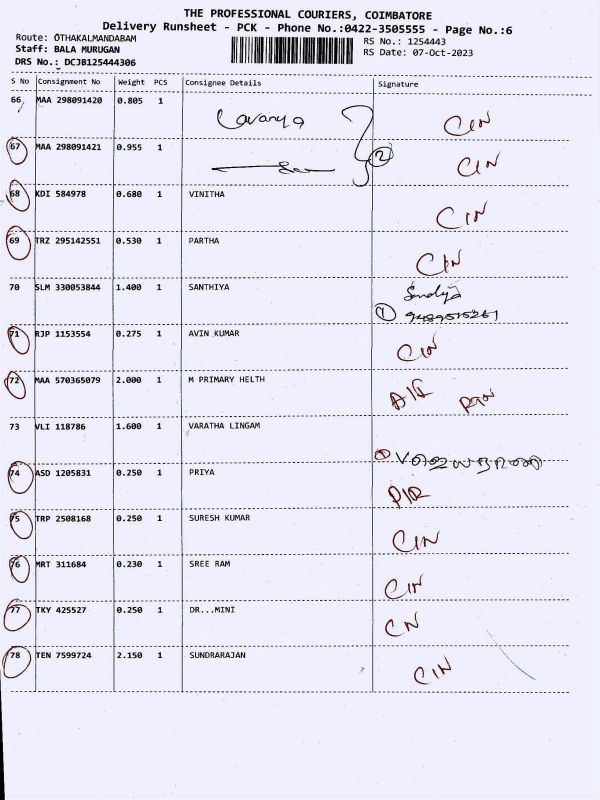 THE PROFESSIONAL COURIERS, COIMBATORE
Delivery Runsheet - PCK - Phone No.:0422-3505555 - Page No.:6
Route: OTHAKALMANDABAM RS No.: 1254443
Staff: BALA MURUGAN RS Date: 07-Oct-2023
DRS No.: DCJB125444306
S No Consignment No Weight PCS Consignee Details Signature
66 MAA 298091420 0.805 1 Lavanya CIN
67 MAA 298091421 0.955 1 2 CIN
68 KDI 584978 0.680 1 VINITHA CIN
69 TRZ 295142551 0.530 1 PARTHA CIN
70 SLM 330053844 1.400 1 SANTHIYA Sandiya
1 9489515261
71 RJP 1153554 0.275 1 AVIN KUMAR CIN
72 MAA 570365079 2.000 1 M PRIMARY HELTH
73 VLI 118786 1.600 1 VARATHA LINGAM
74 ASD 1205831 0.250 1 PRIYA
75 TRP 2508168 0.250 1 SURESH KUMAR CIN
76 MRT 311684 0.230 1 SREE RAM CIN
77 TKY 425527 0.250 1 DR...MINI CN
78 TEN 7599724 2.150 1 SUNDRARAJAN CIN